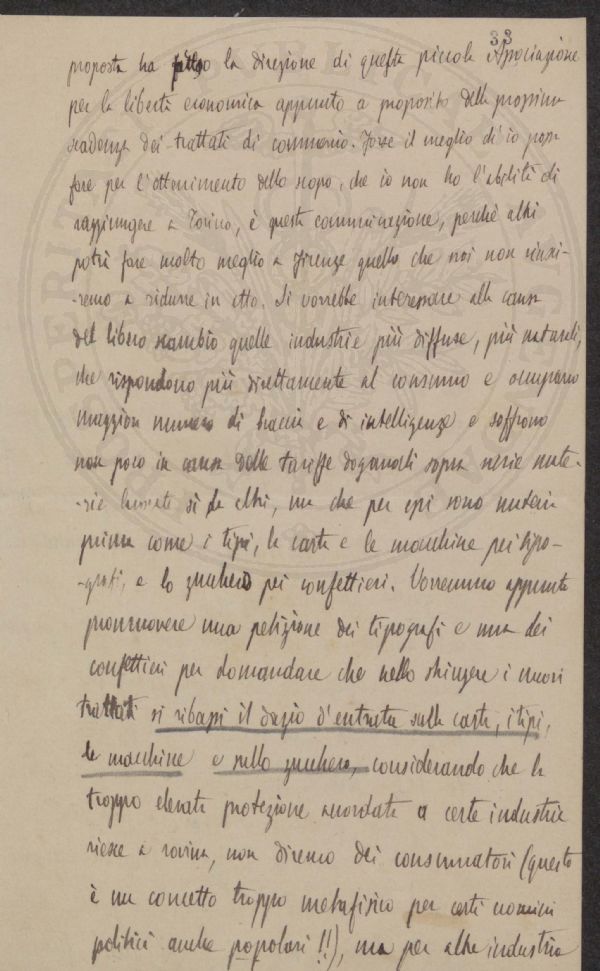 33
proposta ha fatto la direzione di questa piccola Associazione
per la libertà economica appunto a proposito della prossima
scadenza dei trattati di commercio. Forse il meglio ch'io possa
fare per l'ottenimento dello scopo, che io non ho l'abilità di
raggiungere a Torino, è questa comunicazione, perchè altri
potrà fare molto meglio a Firenze quello che noi non riusci-
-remo a ridurre in atto. Si vorrebbe interessare alla causa
del libero scambio quelle industrie più diffuse, più naturali,
che rispondono più direttamente al consumo e occupano
maggior numero di braccia e di intelligenze e soffrono
non poco in causa delle tariffe doganali sopra merie mate-
-rie lavorate sì da altri, ma che per essi sono materia
prima come i tipi, la carta e le macchine pei tipo-
-grafi, e lo zucchero pei confettieri. Vorremmo appunto
promuovere una petizione dei tipografi e una dei
confettieri per domandare che nello stringere i nuovi
trattati si ribassi il dazio d'entrata sulla carta, i tipi,
le macchine e sullo zucchero, considerando che la
troppo elevata protezione accordata a certe industrie
riesce a rovina, non diremo dei consumatori (questo
è un concetto troppo metafisico per certi uomini
politici anche popolari!!), ma per altre industrie